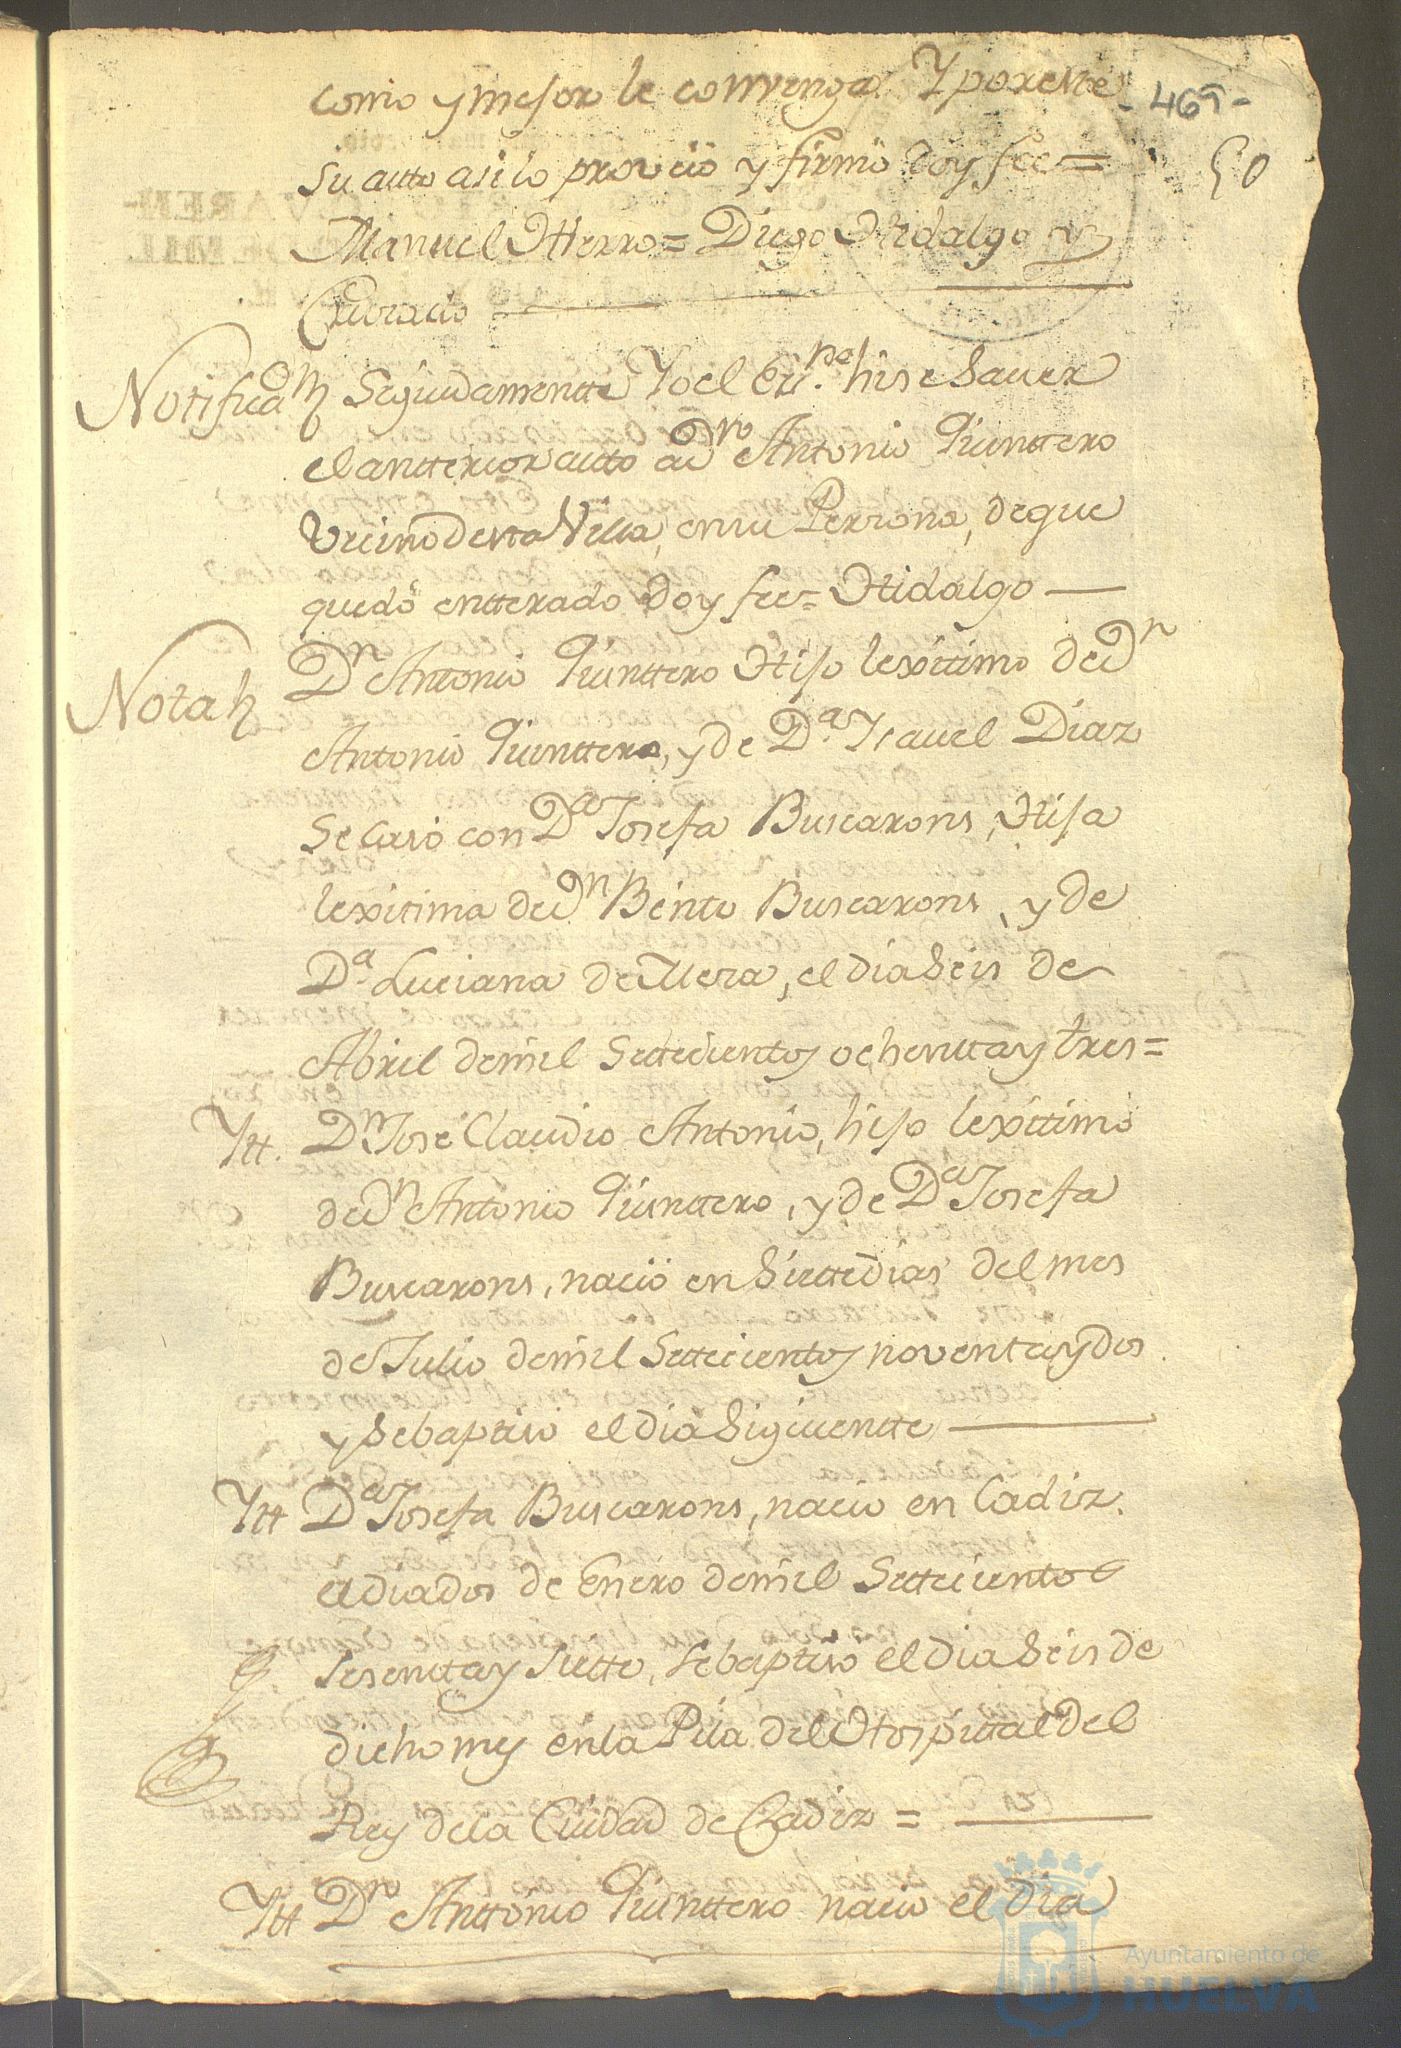 como y mejor le convenga Y por este - 469 -
su auto asi lo proveió y firmó doy fee = 50
Manuel Hierro = Diego Hidalgo y
Notificaon Seguidamentte Yo el Essno. hise saver
el antterior autto a Dn Antonio Quinttero
Vecino desta Villa, en su Persona, de que
quedó entterado doy fee = Hidalgo
Nota Dn Antonio Quinttero Hijo lexitimo de Dn
Antonio Quinttero, y de Da. Ysavel Diaz
Se Caso con Da Josefa Buscarons, Hija
lexitima de Dn Bento Buscarons, y de
Da. Luciana de Mera, el dia Seis de
Abril de mil Settecientos ochentta y tres =
Ytt. Dn José Claudio Antonio, hijo lexittimo
de Dn Antonio Quinttero, y de Da Josefa
Buscarons, nació en Siette dias del mes
de Julio de mil Settecientos noventa y dos
y se baptiso el dia Siguientte
Ytt Da Josefa Buscarons, nacio en Cadiz
el dia dos de Enero de mil Settecientos
sesentta y Siette, se baptiso el dia Seis de
dicho mes en la Pila del Hospittal del
Rey de la Ciudad de Cadiz =
Ytt Dn Anttonio Quinttero nacio el dia
Ayuntamiento de
HUELVA